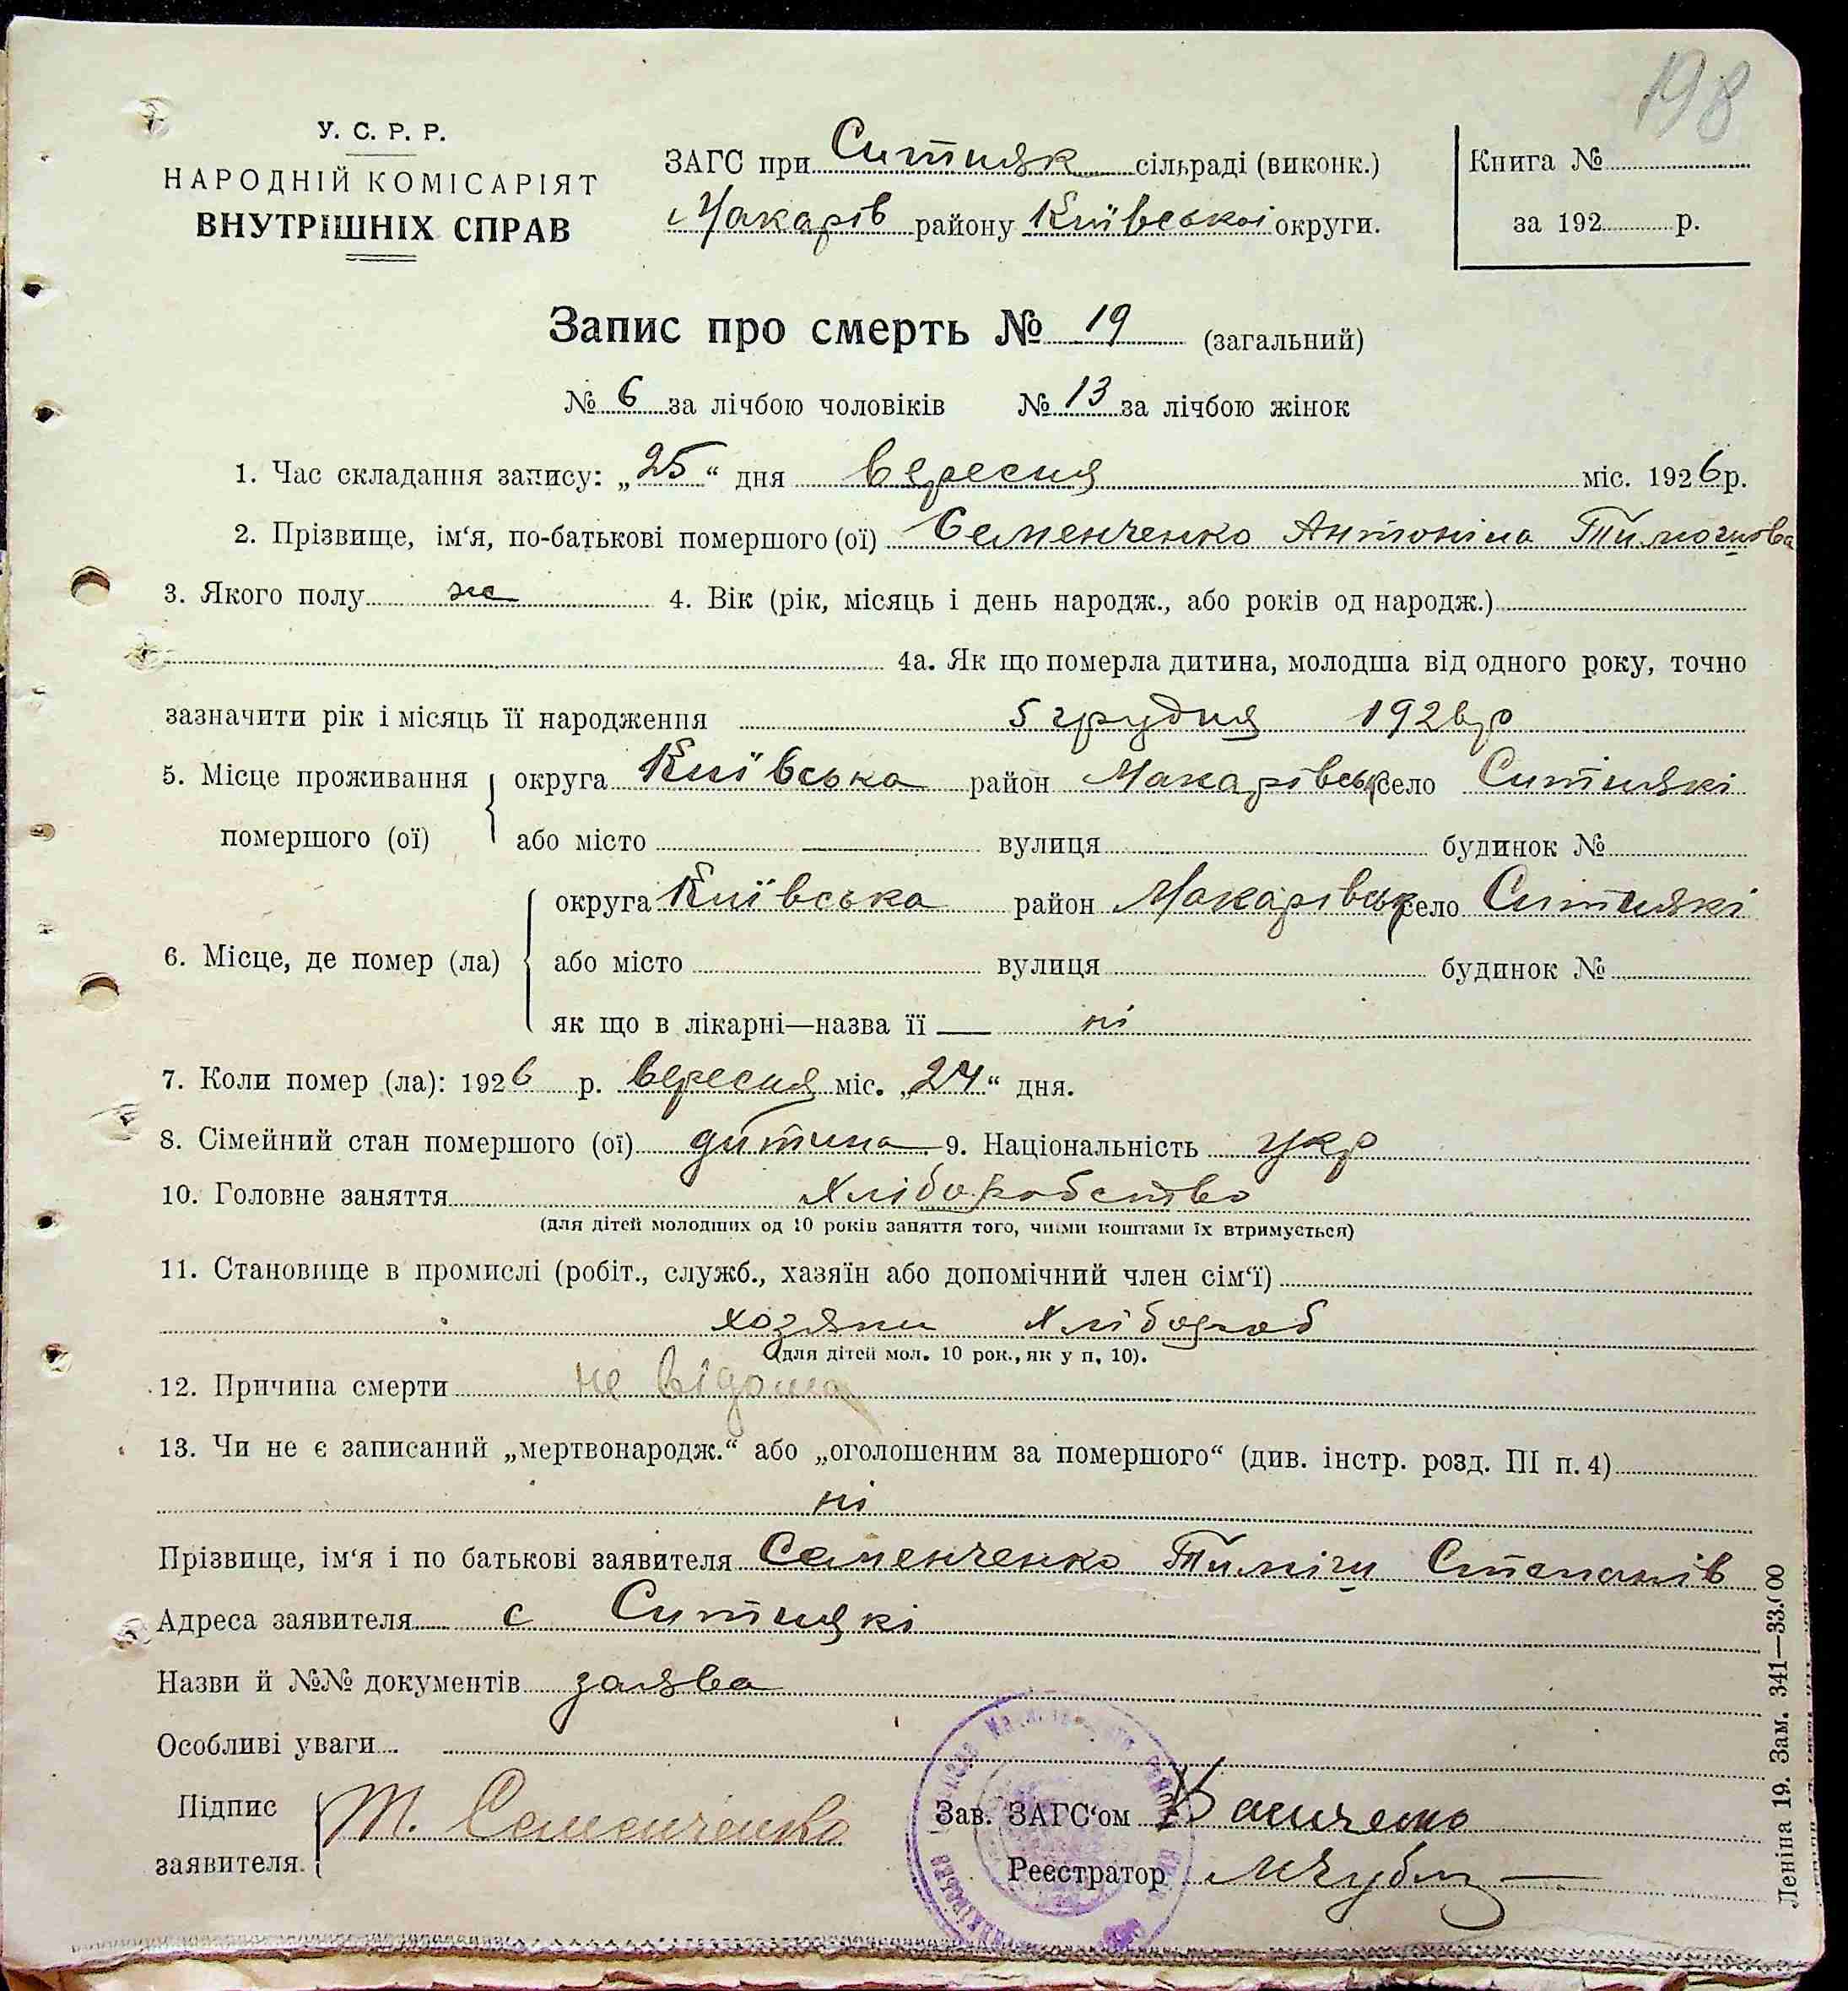 198
У. С. Р. Р.
НАРОДНІЙ КОМІСАРІЯТ
ВНУТРІШНІХ СПРАВ
ЗАГС при Ситняк сільраді (виконк.)
Макарів району Київської округи.
Книга №
за 192 р.
Запис про смерть № 19 (загальний)
№ 6 за лічбою чоловіків № 13 за лічбою жінок
1. Час складання запису: „25“ дня вересня міс. 1926 р.
2. Прізвище, ім‘я, по-батькові помершого (ої) Семенченко Антоніна Тимошова
3. Якого полу же 4. Вік (рік, місяць і день народж., або років од народж.)
4а. Як що померла дитина, молодша від одного року, точно
зазначити рік і місяць її народження 5 грудня 1926 р
5. Місце проживання помершого (ої) округа Київська район Макарівськ село Ситняки
або місто вулиця будинок №
6. Місце, де помер (ла) округа Київська район Макарівськ село Ситнякі
або місто вулиця будинок №
як що в лікарні—назва її — ні
7. Коли помер (ла): 1926 р. вересня міс. „24“ дня.
8. Сімейний стан помершого (ої) дитина 9. Національність укр
10. Головне заняття Хліборобство
(для дітей молодших од 10 років заняття того, чиїми коштами їх втримується)
11. Становище в промислі (робіт., служб., хазяїн або допомічний член сім‘ї)
хозяин Хлібороб
(для дітей мол. 10 рок., як у п. 10).
12. Причина смерти не відома
13. Чи не є записаний „мертвонародж.“ або „оголошеним за помершого“ (див. інстр. розд. III п. 4)
ні
Прізвище, ім‘я і по батькові заявителя Семенченко Тиміш Степанів
Адреса заявителя с Ситнякі
Назви й №№ документів заява
Особливі уваги
Підпис заявителя. Т. Семенченко
Зав. ЗАГС‘ом
Реєстратор
Леніна 19. Зам. 341—33.000